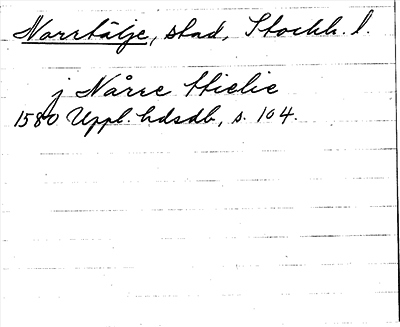 Norrtälje, stad, Stockh. l.
j Nårre ttielie
1580 Uppl. hdsdb, s. 104.